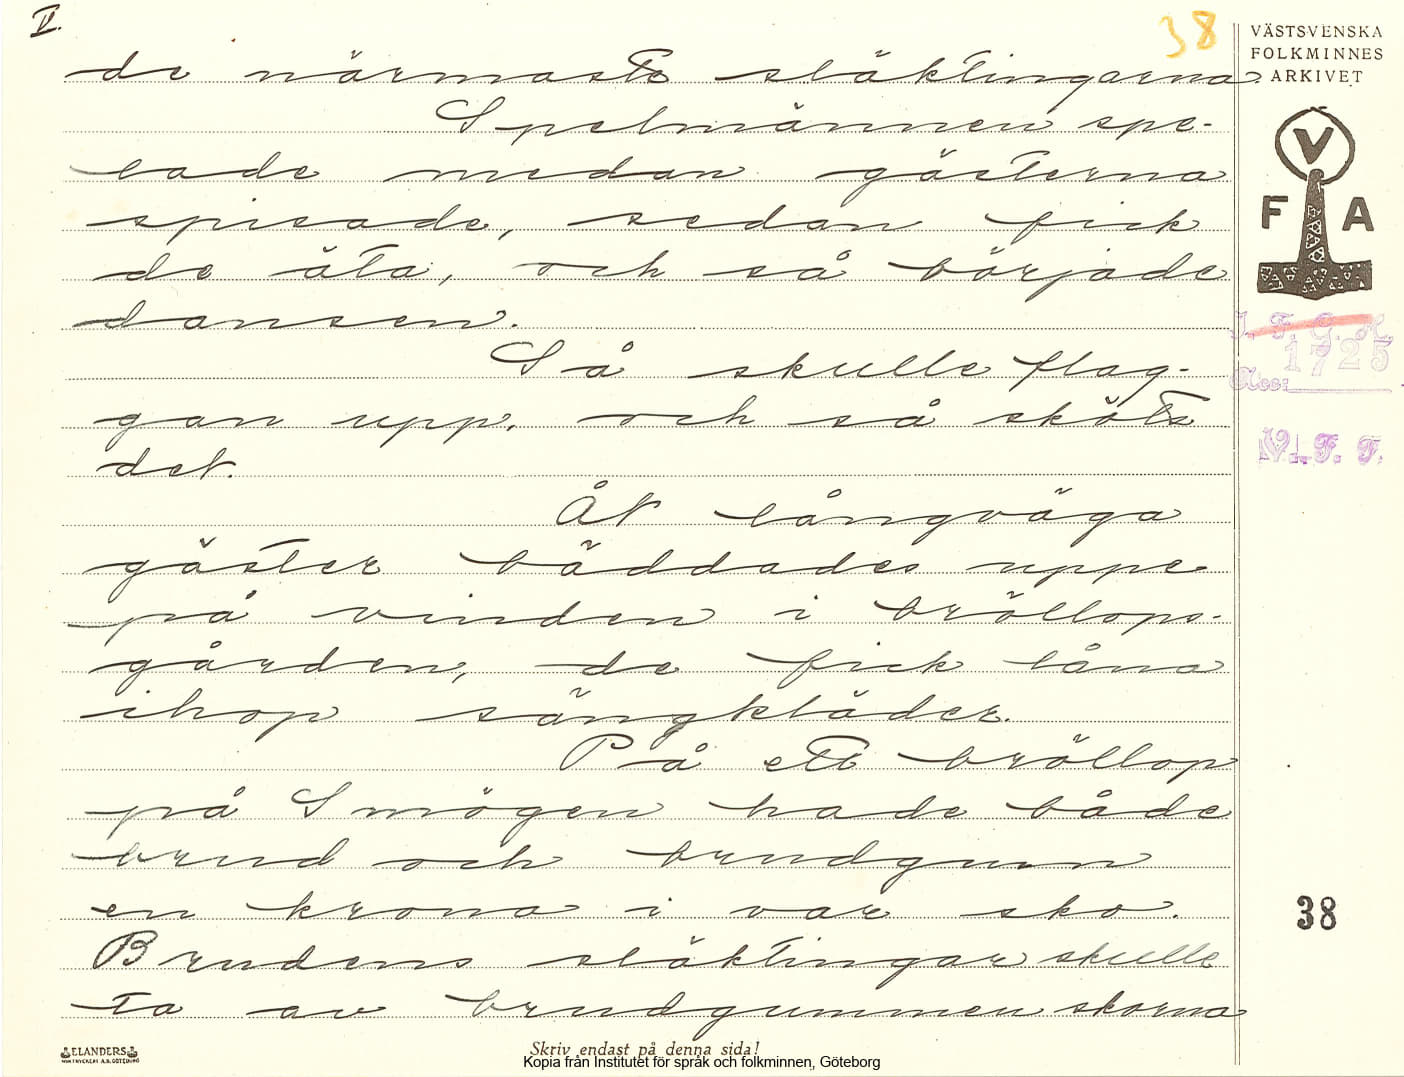 V.
38
VÄSTSVENSKA
FOLKMINNES
ARKIVET
de närmaste släktingarna
Spelmännen spe-
lade medan gästerna
spisade, sedan fick
de äta, och så började
dansen.
Så skulle flag-
gan upp, och så sköts
det.
Åt långväga
gäster bäddades uppe
på vinden i bröllops-
gården, de fick låna
ihop sängkläder.
På ett bröllop
på Smögen hade både
brud och brudgum
en krona i var sko.
Brudens släktingar skulle
ta av brudgummen skorna
V
F A
I. F. G. H.
1725
Acc:
V. F. F.
38
ELANDERS
Skriv endast på denna sida!
Kopia från Institutet för språk och folkminnen, Göteborg